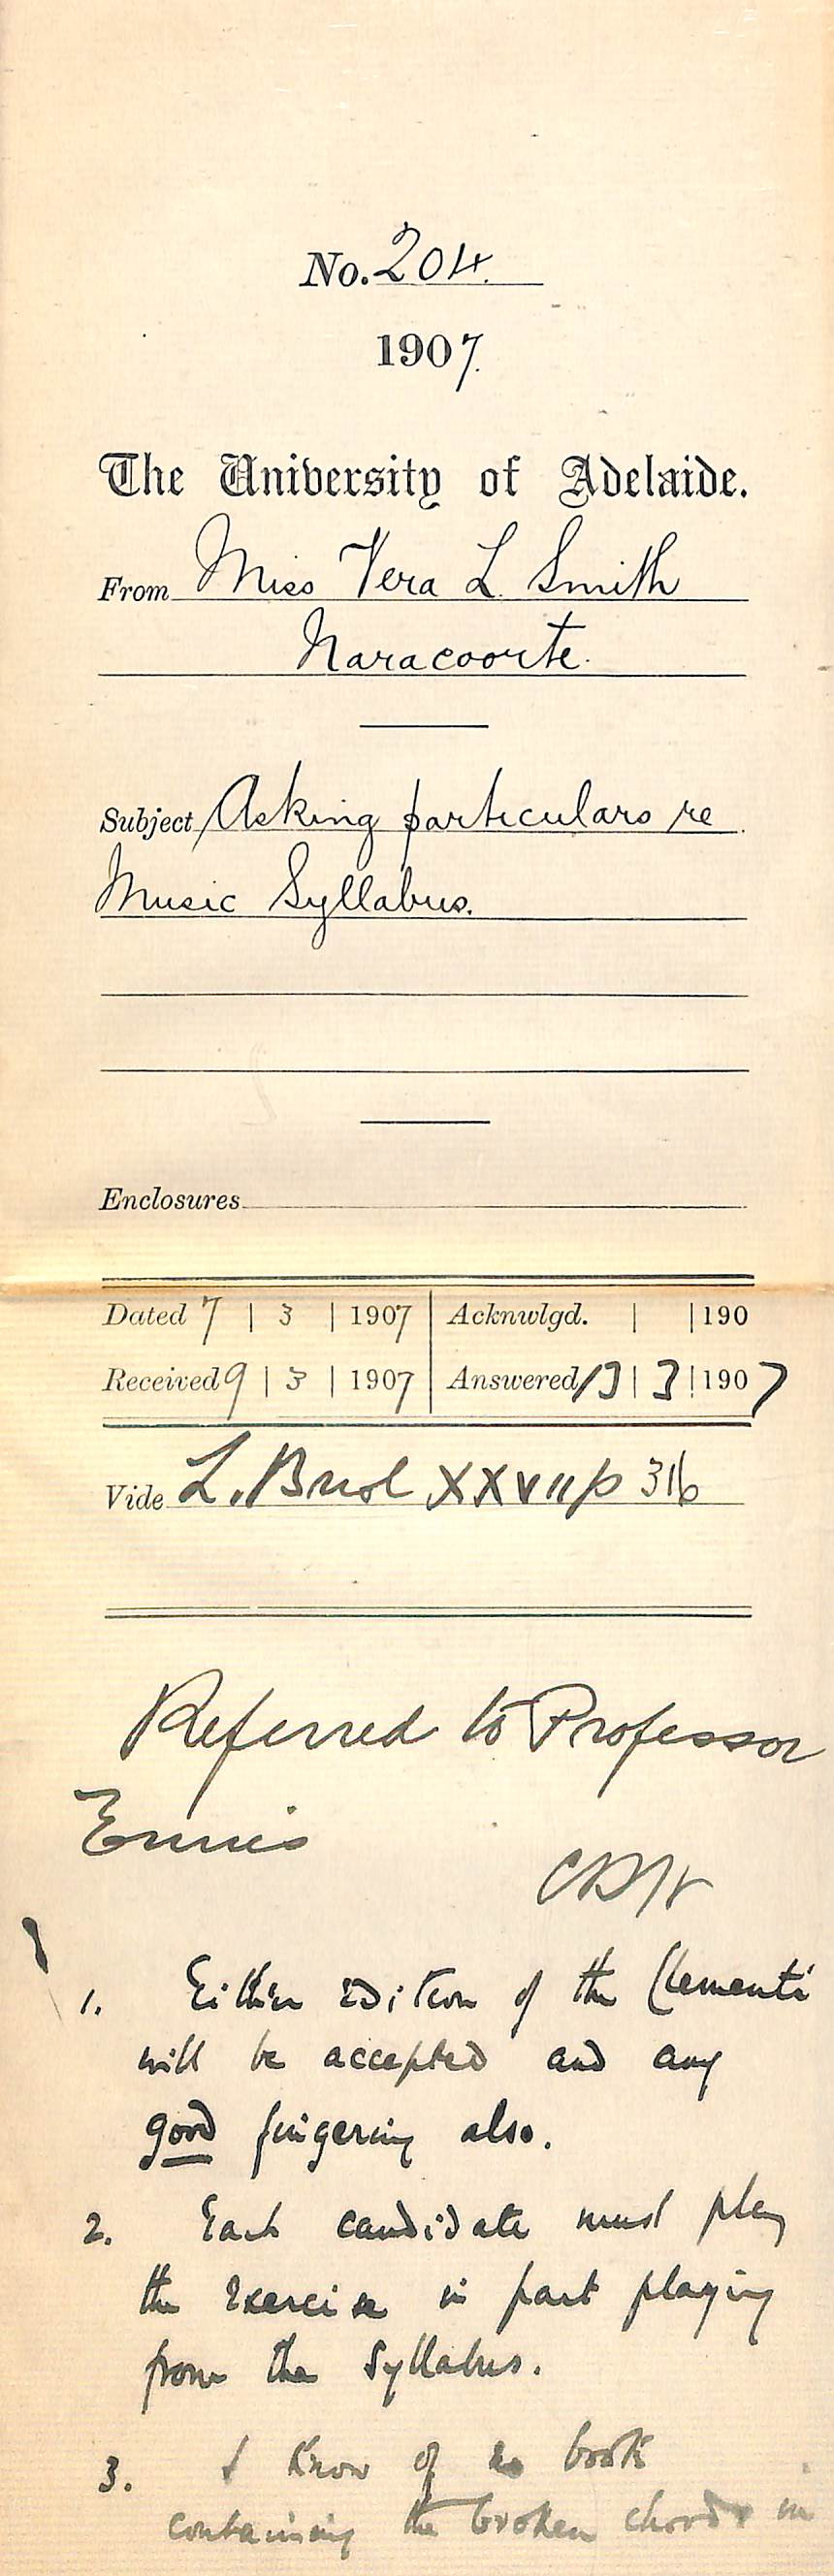 No. 204.
1907.
The University of Adelaide.
From Miss Vera L. Smith
Naracoorte.
Subject Asking particulars re
Music Syllabus.
Enclosures
Dated 7 | 3 | 1907 | Acknwlgd. | | 190
Received 9 | 3 | 1907 | Answered 13 | 3 | 1907
Vide L. XXVII p 316
Referred to Professor
Ennis
CRH
1. Either Edition of the Clementi
will be accepted and any
good fingering also.
2. Each candidate must play
the Exercise in part playing
from the Syllabus.
3. I know of no book
containing the broken chords in